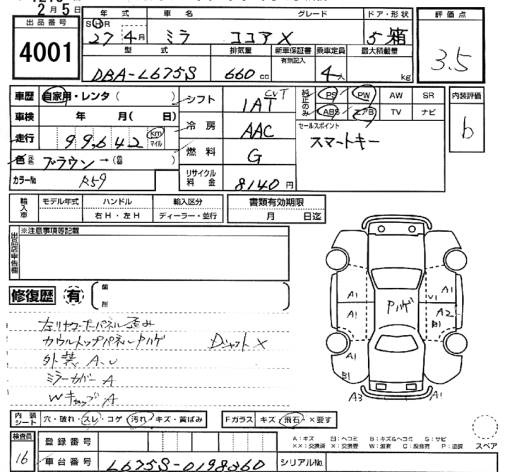 2月5日
出品番号
4001
年式 車名 グレード ドア・形状
SⒽR 27年4月 ミラ ココアX 5 箱
型式 排気量 新車保証書 有無記入 乗車定員 最大積載量
DBA-L675S 660cc 4人 kg
評価点
3.5
内装評価
b
車歴 自家用・レンタ( )
車検 年 月( 日)
走行 99,642 km マイル
色 ブラウン→( )
カラーNo R59
シフト 1AT CVT
冷房 AAC
燃料 G
リサイクル料金 8140円
純正のみ PS PW AW SR
ABS エアB TV ナビ
セールスポイント
スマートキー
輸入車 モデル年式 ハンドル 輸入区分
右H・左H ディーラー・並行
書類有効期限
月 日迄
出品店申告欄 ※注意事項等記載
修復歴 有
箇所
カウルトップパネルPハゲ DシャフトX
外装 A、U
ミラーカバーA
WキャップA
A1 A1 A1 A1 B1 A3
Pハゲ
U1 A2 B1 A1
内装シート 穴・破れ・スレ・コゲ・汚れ・キズ・黄ばみ
Fガラス キズ・飛石・×要す
スペア
検査員 16
登録番号
車台番号 L675S-0198360
シリアルNo.
A:キズ B:キズ&ヘコミ S:サビ